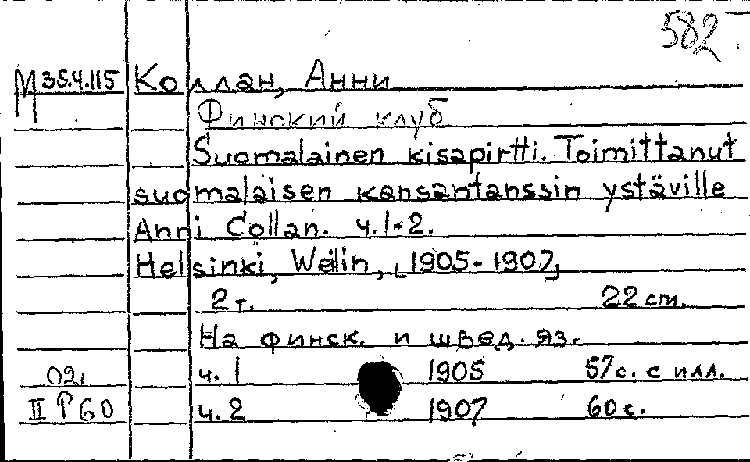 582
М 35.4.115 Коллан, Анни
Финский клуб
Suomalainen kisapirtti. Toimittanut
suomalaisen kansantanssin ystäville
Anni Collan. ч.1-2.
Helsinki, Welin, [1905-1907]
2 т. 22 cm.
На финск. и швед. яз.
02. ч. 1 1905 57 с. с илл.
II P 60 ч. 2 1907 60 с.